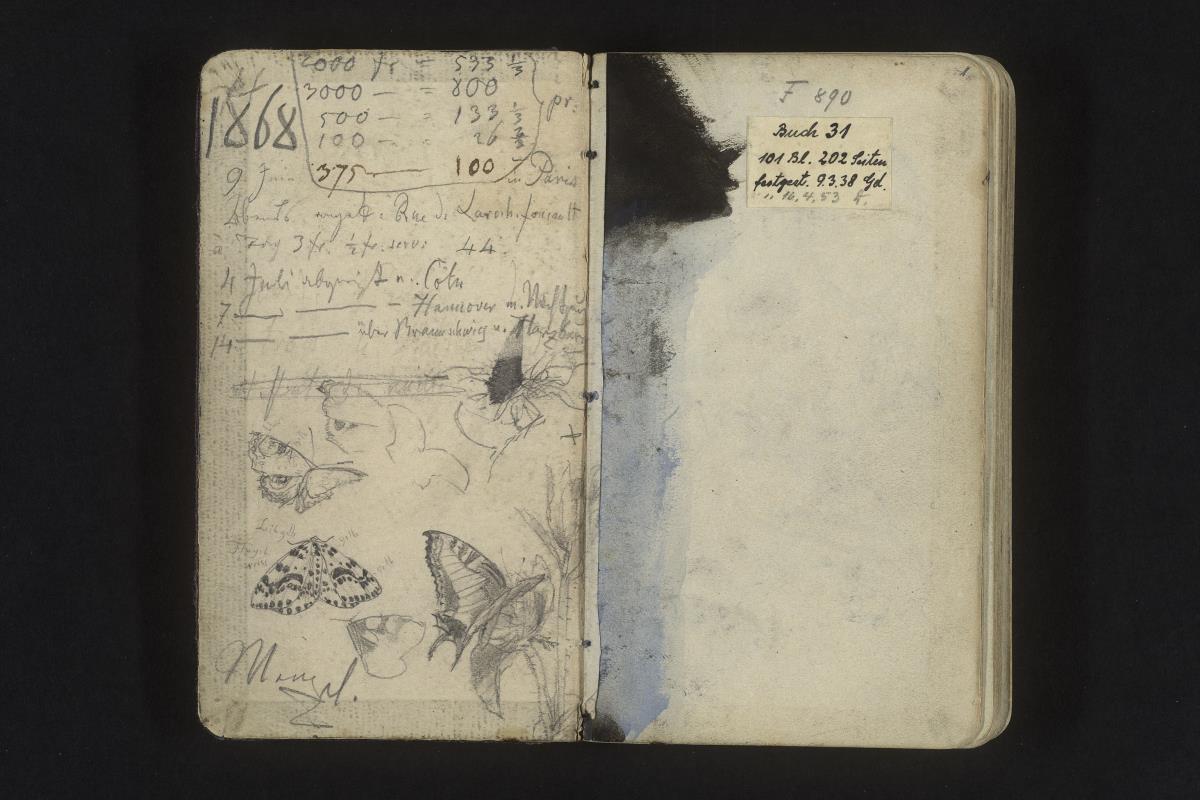 1868
2000 fr = 533 1/3
3000 — = 800
500 — = 133 1/3
100 — = 26 2/3
375 — 100
pr:
9 Juni in Paris
Rue de Laroch.foucault
à Tag 3 fr. ½ fr. serv: 44.
4 Juli abgereist n. Cöln
7 — — - Hannover m.
14 — — über Braunschweig n. Harzburg
+
gelb
gelb
Menzel.
1.
F 890
Buch 31
101 Bl. 202 Seiten
festgest. 9.3.38 Gd.
" 16.4.53 k.